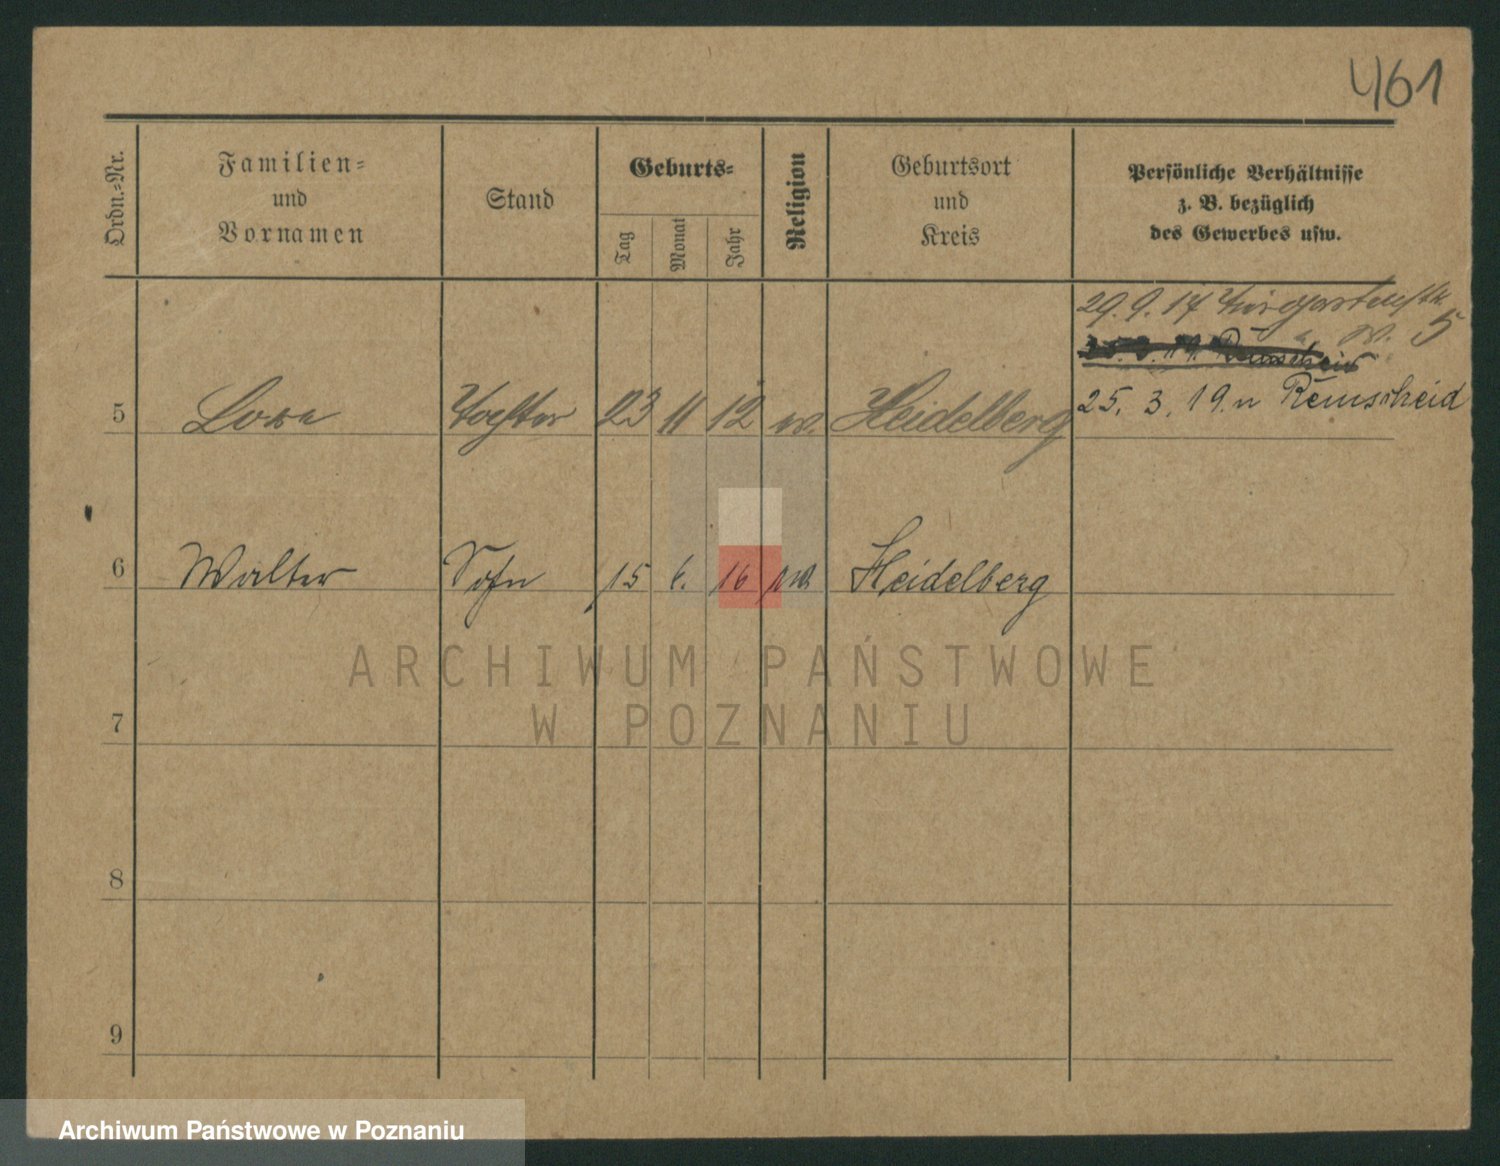 461
Ordn.=Nr.
Familien=
und
Vornamen
Stand
Geburts=
Tag
Monat
Jahr
Religion
Geburtsort
und
Kreis
Persönliche Verhältnisse
z. B. bezüglich
des Gewerbes usw.
29. 9. 17
5
25. 3. 19. Remscheid
25. 3. 19. n Remscheid
5 Lore Tochter 23 11 12 Heidelberg
6 Walter Sohn 15 6. 16 Heidelberg
ARCHIWUM PAŃSTWOWE
W POZNANIU
7
8
9
Archiwum Państwowe w Poznaniu